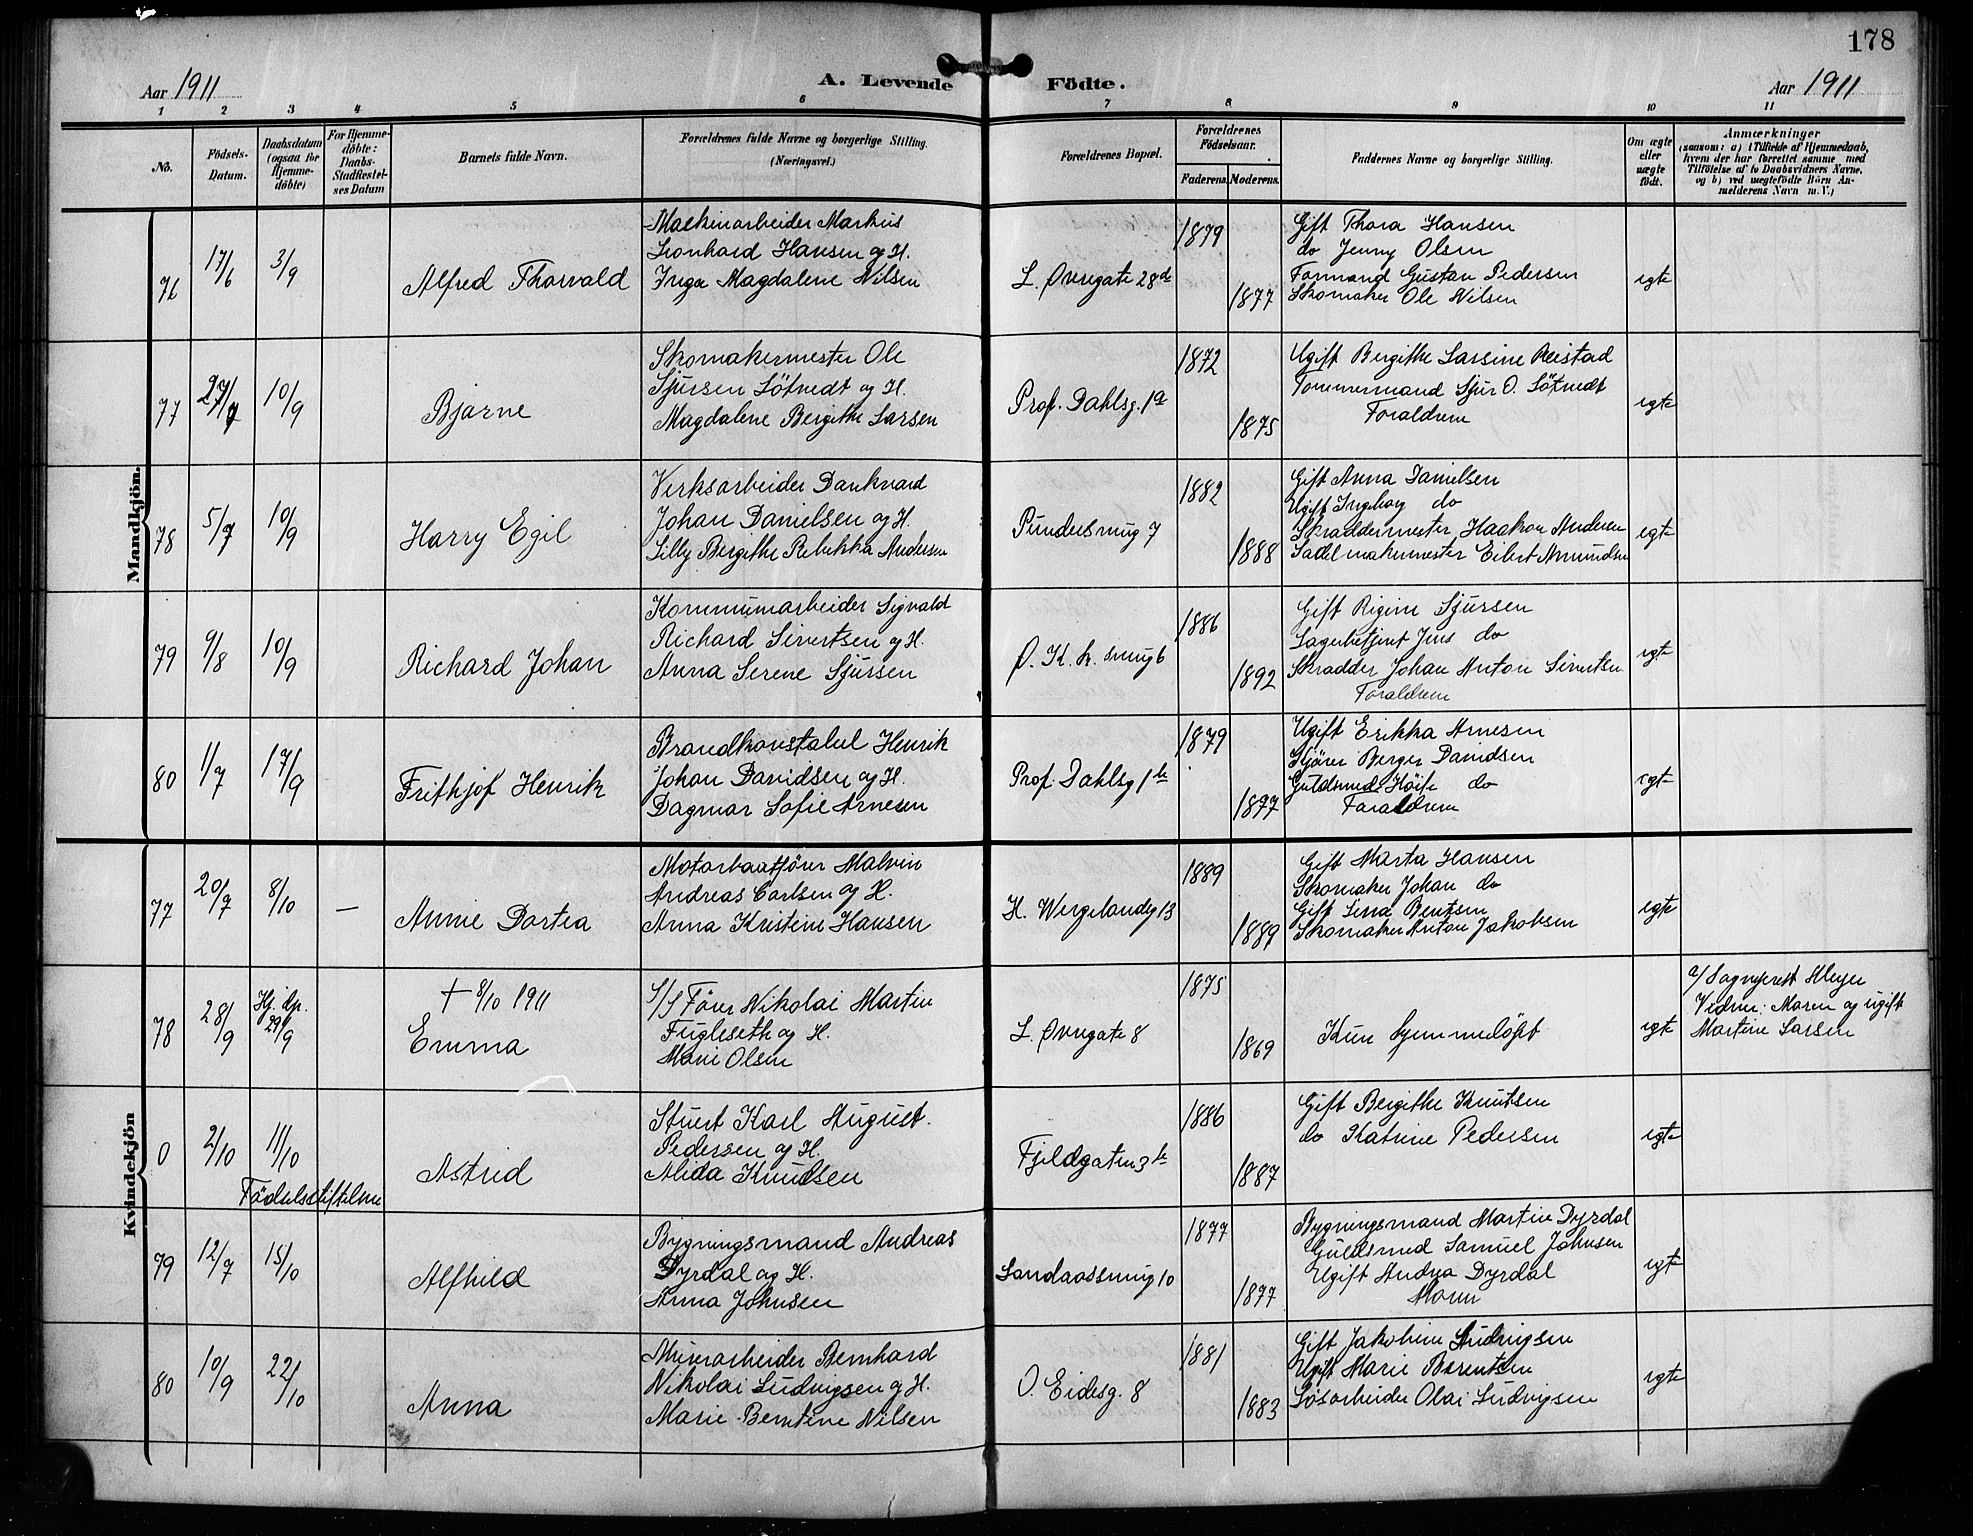 178
Aar 1911
A. Levende Fødte.
Aar 1911
1 2 3 4 5 6 7 8 9 10 11
No.
Fødsels-
Datum.
Daabsdatum
(ogsaa for
Hjemme-
døbte)
For Hjemme-
døbte:
Daabs-
Stadfæstel-
ses Datum
Barnets fulde Navn.
Forældrenes fulde Navne og borgerlige Stilling.
(Næringsvei.)
Forældrenes Bopæl.
Forældrenes
Fødselsaar.
Faderens. Moderens.
Faddernes Navne og borgerlige Stilling.
Om ægte
eller
uægte
født.
Anmærkninger
(saasom: a) i Tilfælde af Hjemmedaab,
hvem der har forrettet samme med
Tilføielse af to Daabsvidners Navne,
og b) ved uægtefødte Børn An-
melderens Navn m. V.)
Mandkjön.
76
17/6
3/9
Alfred Thorvald
Maskinarbeider Markus
Leonhard Hansen og H.
Inga Magdalene Nilsen
L. Øvregate 28d
1879
1877
Gift Thora Hansen
do Jenny Olsen
Formand Gustav Pedersen
Skomaker Ole Nilsen
egte
77
27/7
10/9
Bjarne
Skomakermester Ole
Sjursen Sötvedt og H.
Magdalene Bergithe Larsen
Prof. Dahlsg. 1a
1872
1875
Ugift Bergithe Larsine Reistad
Tommermand Sjur O. Sötvedt
Forældrene
egte
78
5/7
10/9
Harry Egil
Verksarbeider Dankvard
Johan Danielsen og H.
Lilly Bergithe Rebekka Andersen
Pundersmug 7
1882
1888
Gift Anna Danielsen
Ugift Ingeborg do
Skræddermester Haakon Andersen
Sadelmakermester Eibert Amundsen
egte
79
9/8
10/9
Richard Johan
Kommunarbeider Sigvald
Richard Sivertsen og H.
Anna Serene Sjursen
Ø. K. k. smug 6
1886
1892
Gift Regine Sjursen
Lagerbetjent Jens do
Skrædder Johan Anton Sivertsen
Forældrene
egte
80
1/7
17/9
Frithjof Henrik
Brandkonstabel Henrik
Johan Davidsen og H.
Dagmar Sofie Arnesen
Prof. Dahlsg 1b
1879
1877
Ugift Erikka Arnesen
Kjører Berger Davidsen
Guldsmed do
Forældrene
egte
Kvindekjön
77
20/7
8/10
—
Annie Dortea
Motorbaatförer Malvin
Andreas Carlsen og H.
Anna Kristine Hansen
H. Wergelandsg 13
1889
1889
Gift Marta Hansen
Skomaker Johan do
Gift Lina Bentsen
Skomaker Anton Jakobsen
egte
78
28/9
Hj. dp.
29/9
† 8/10 1911
Emma
S/S Förer Nikolai Martin
Fugleseth og H.
Marie Olsen
L. Øvregate 8
1875
1869
Kun hjemmedöpt
egte
a/ Sogneprest Meyer
Vidner: Moren og ugift
Martine Larsen
0
2/10
11/10
Födselsstiftelsen
Astrid
Stuert Karl August
Pedersen og H.
Alida Knudsen
Fjeldgaten 3b
1886
1887
Gift Bergithe Knutsen
do Katrine Pedersen
egte
79
12/7
15/10
Alfhild
Bygningsmand Andreas
Dyrdal og H.
Anna Johnsen
Landaassmug 10
1877
1877
Bygningsmand Martin Dyrdal
Guldsmed Samuel Johnsen
Ugift Andrea Dyrdal
Moren
egte
80
10/9
22/10
Anna
Murerarbeider Bernhard
Nikolai Ludvigsen og H.
Marie Berntine Nilsen
O. Eidesg. 8
1881
1883
Gift Jakobine Ludvigsen
Ugift Marie Berentsen
Løsarbeider Olai Ludvigsen
egte